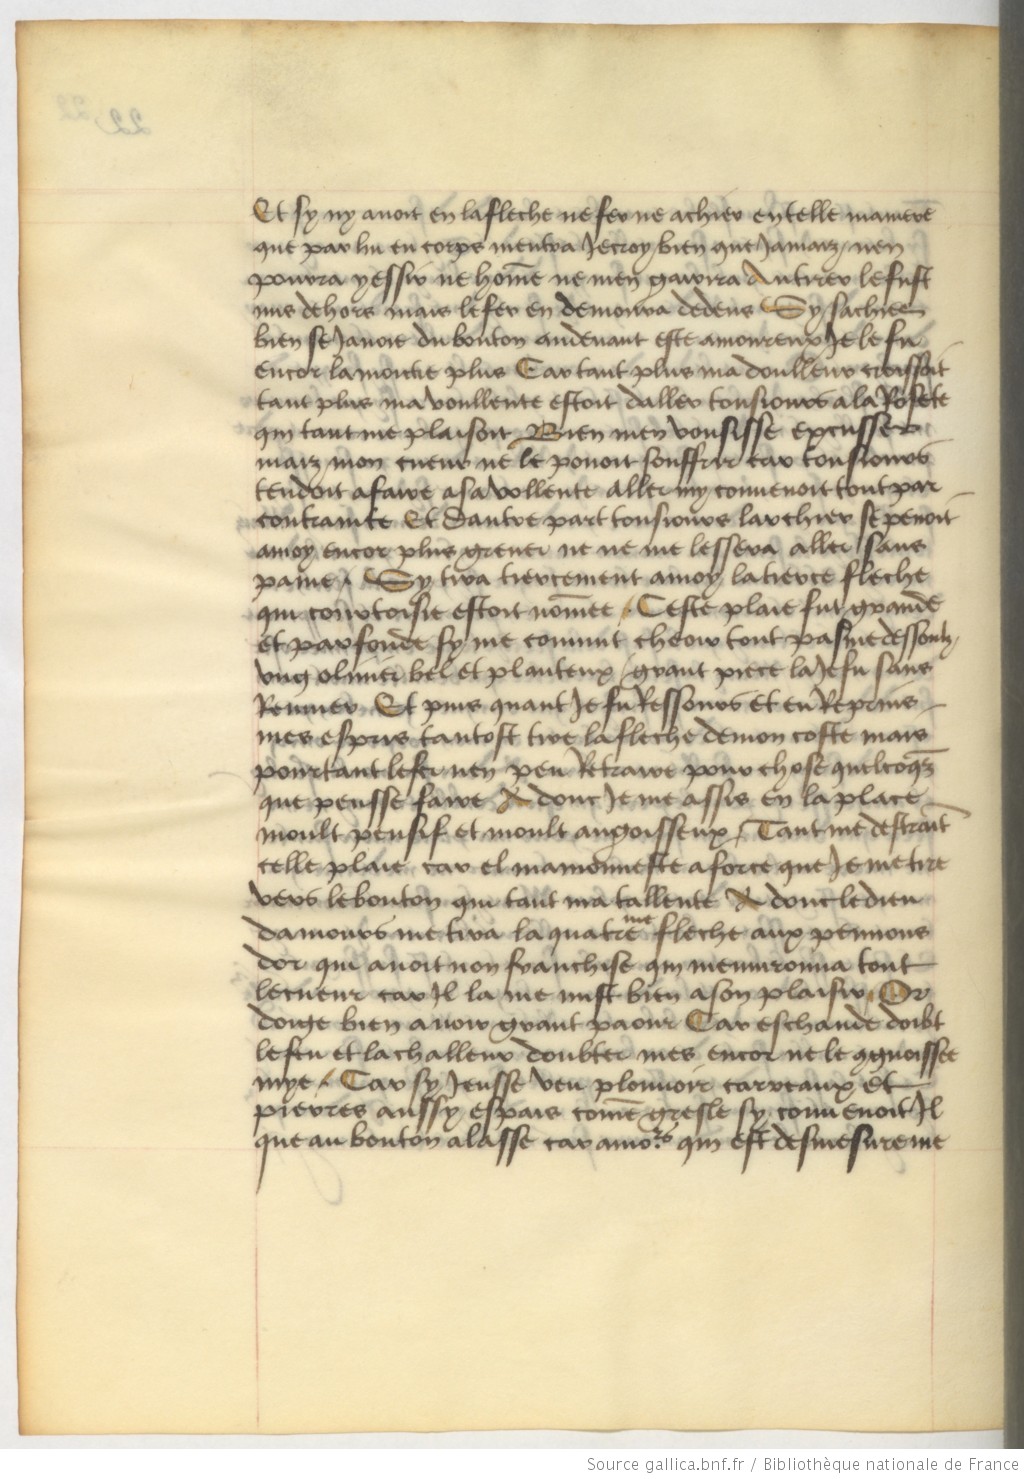 Et sy ny auoit en la fleche ne fer ne achier en telle maniere
que par lui en corps mentra Je croy bien que Jamaiz nen
pourra yessir ne home ne men garira Au tirer le fust
mis dehors mais le fer en demoura dedens Sy sachiez
bien se Jauoie du bouton au deuant este amoureux Je le fu
encor la moictie plus Car tant plus ma doulleur croissoit
tant plus ma voullente estoit daller tousiours a la Rosete
qui tant me plaisoit Bien men vousisse excusser
maiz mon cueur ne le pouoit souffrir car tousiours
tendoit a faire a sa vollente Aller my conuenoit tout par
contrainte Et Dautre part tousiours larchier se penoit
a moy encor plus greuer ne ne me lessera aller sans
paine Sy tira tiercement a moy la tierce fleche
qui courtoisie estoit nomee Ceste plaie fut grande
et parfonde sy me conuint cheoir tout pasme dessoubz
vng oliuier bel et planteux grant piece la Je fu sans
Remuer Et puis quant Je fu Ressours Et eu Reprins
mes espris tantost tire la fleche de mon coste mais
pourtant le fer nen peu Retraire pour chose quelcoqz
que peusse faire A donc Je me assis en la place
moult pensif et moult angoisseux Tant me destraint
celle plaie car el mamonneste a force que Je me tire
vers le bouton qui tant ma tallente A donc le dieu
damours me tira la quatreme fleche aux pennons
dor qui auoit non franchise qui menuironna tout
le cueur car Il la me mist bien a son plaisir Or
doige bien auoir grant paour Car eschaude doibt
le feu et la challeur doubter mes encor ne le cgnoissee
mye Car sy Jeusse veu plouuoir carreaux Et
pierres aussy espais come gresle sy conuenoit Il
que au bouton alasse car amors qui est desmesureme
22
Source gallica.bnf.fr / Bibliothèque nationale de France